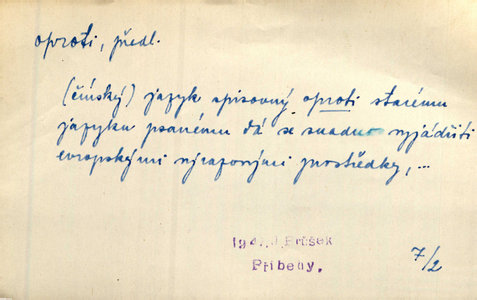 oproti, předl.
(čínský) jazyk spisovný oproti starému
jazyku psanému dá se snadno vyjádřiti
evropskými výrazovými prostředky, ...
Průšek
Příběhy,
7/2